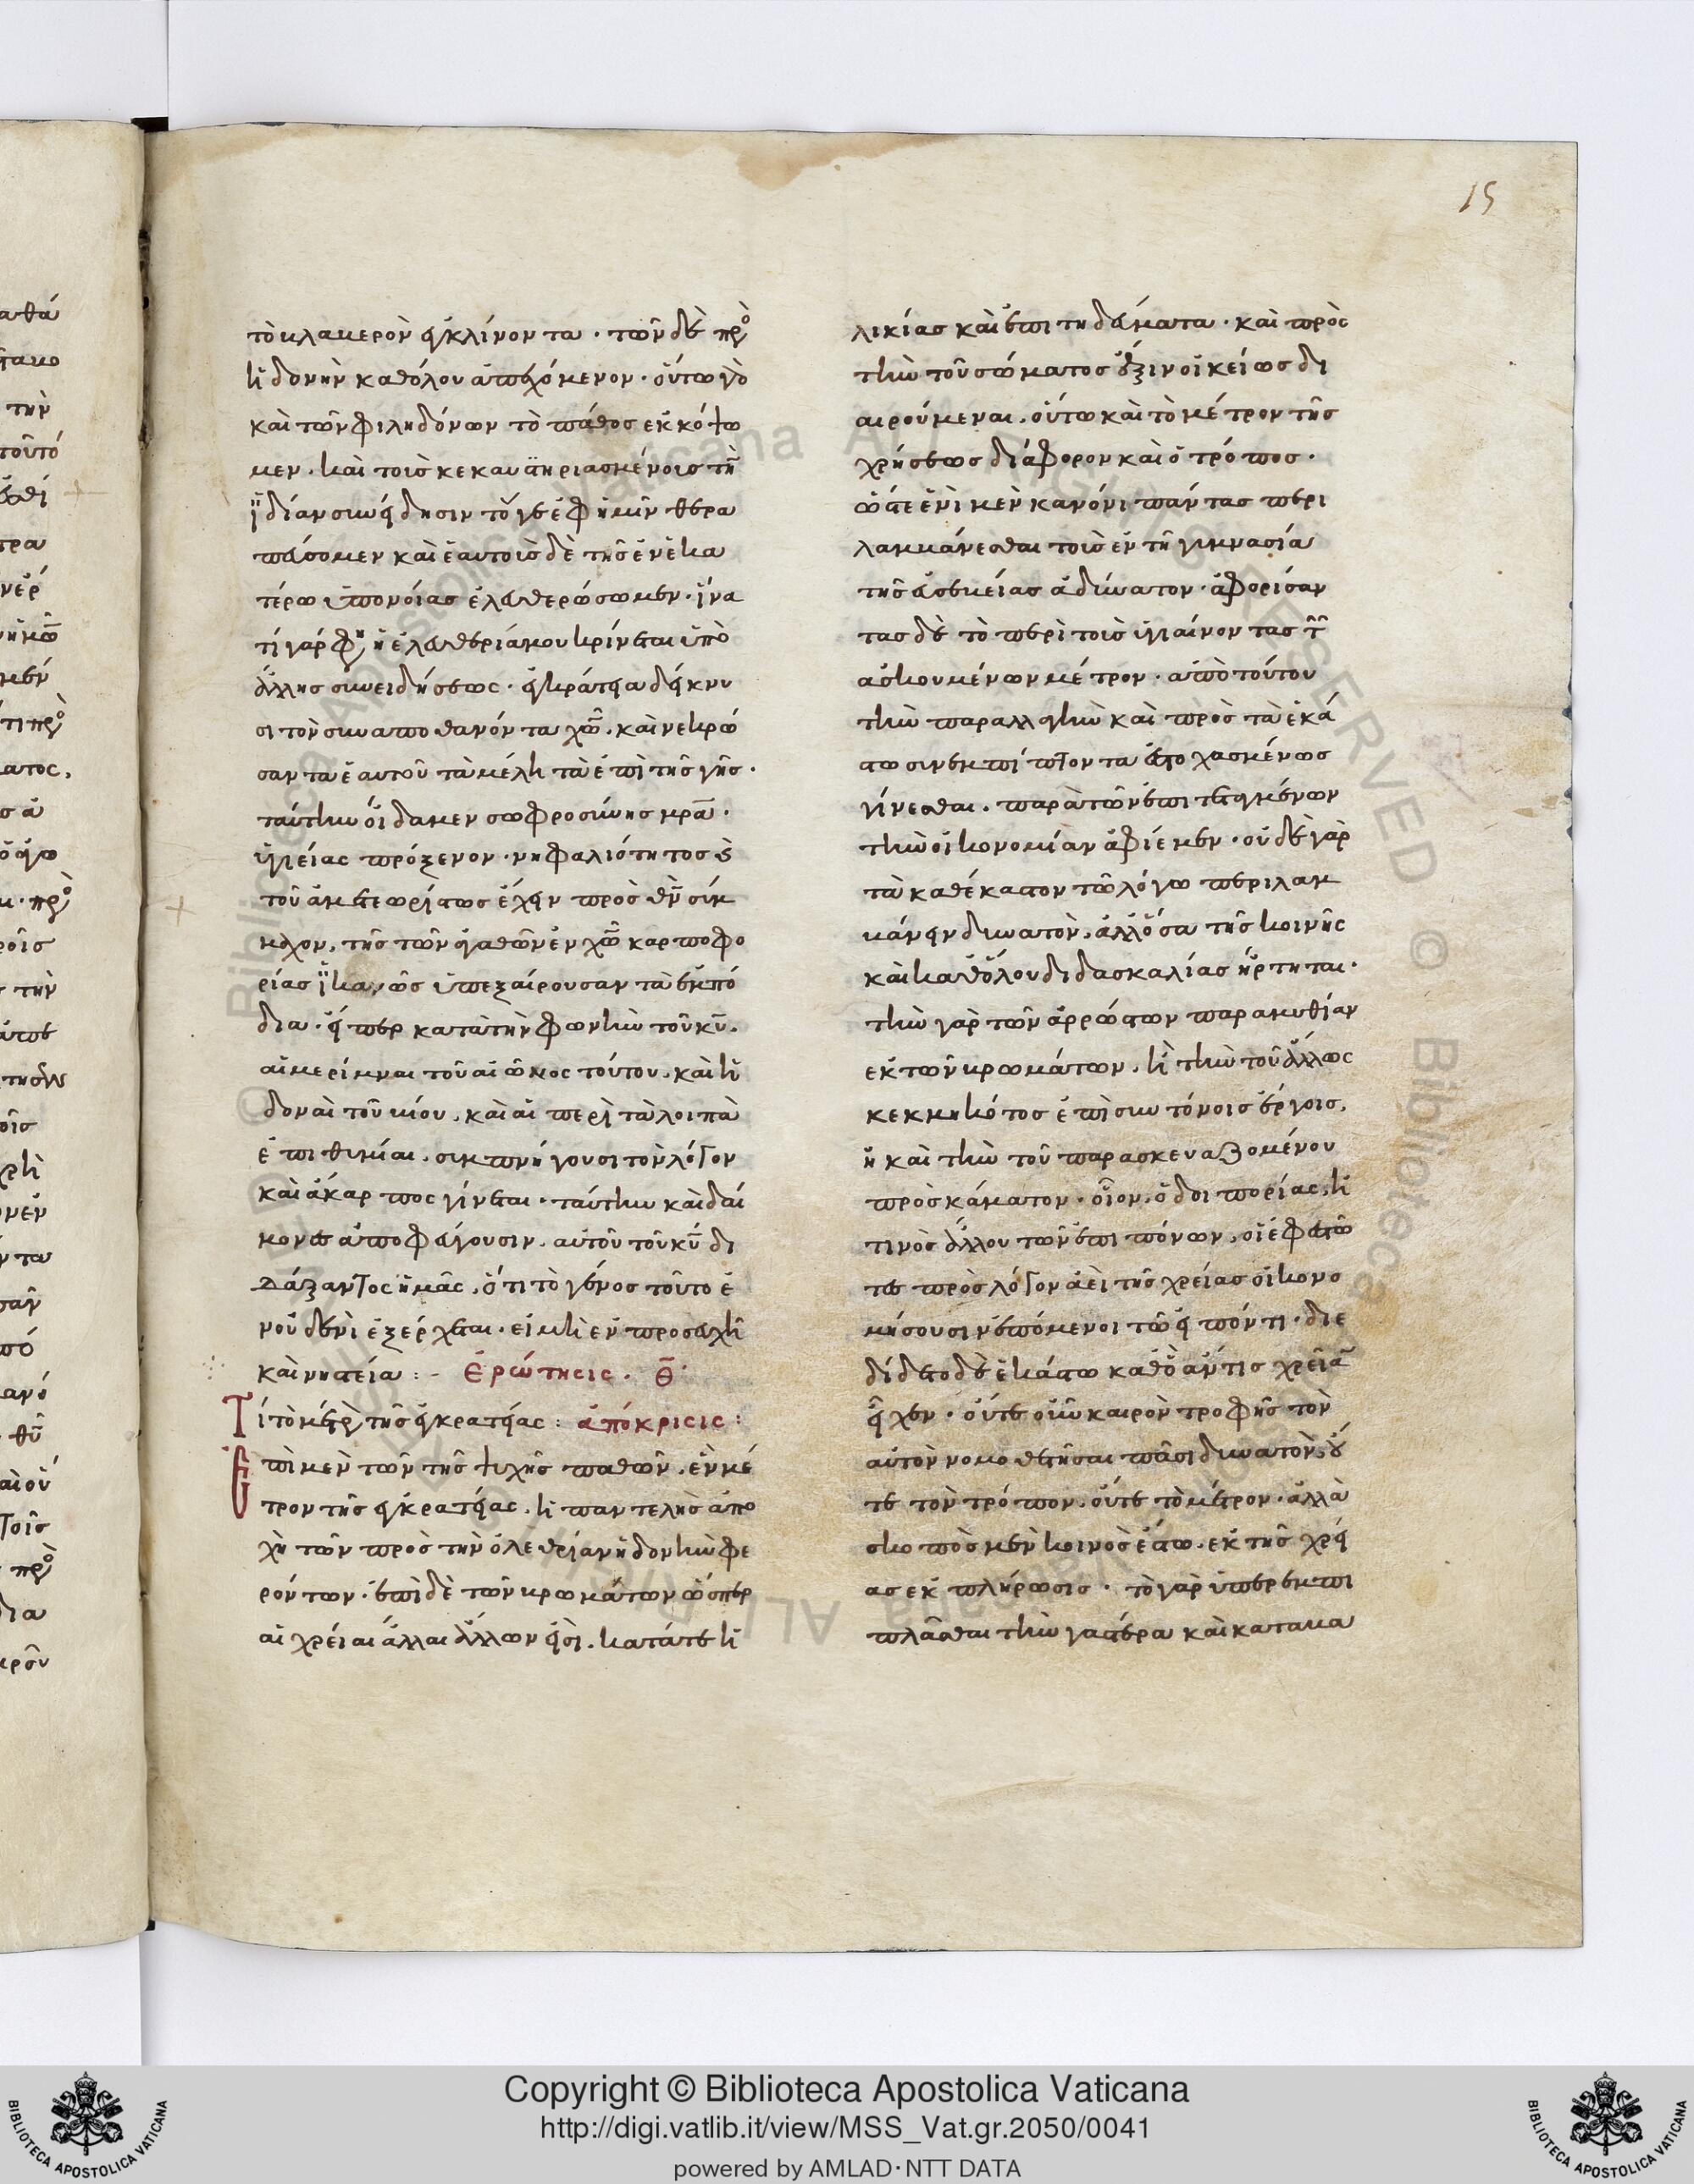 15
τὸ βλαβερὸν ἐκκλίνοντα · τῶν δὲ πρὸ
ἡδονὴν καθόλου ἀπεχόμενον · οὕτω γὸ
καὶ τῶν φιληδόνων τὸ πάθος ἐκκόψω
μεν · καὶ τοῖς κεκαυτηριασμένοις τῆ
ἰδίαν συνείδησιν τό γε ἐφ ἡμῖν θερα
πεύσομεν καὶ ἑαυτοῖς δὲ τῆς ἑνὲκα
τέρω ὑπονοίας ἐλευθερώσωμεν · ἵνα
τί γάρ φη ἡ ἐλευθερία μου κρίνεται ὑπὸ
ἄλλης συνειδήσεως · ἐγκράτεια δείκνυ
σι τὸν συναποθανόντα χῶ · καὶ νεκρώ
σαντα ἑαυτοῦ τὰ μέλη τὰ ἐπὶ τῆς γῆς ·
ταύτην οἴδαμεν σωφροσύνης μρα ·
ὑγιείας πρόξενον · νηφαλιότητος
τοῦ ἀμετεωρίστως ἔχειν πρὸς θν σύμ
βοχον · τῆς τῶν ἀγαθῶν ἐν χῶ καρποφο
ρίας ἱκανῶς ὑπεξαίρουσαν τὰ ἐμπό
δια · εἴπερ κατὰ τὴν φωνὴν τοῦ κυ ·
αἱ μερίμναι τοῦ αἰῶνος τούτου · καὶ ἡ
δοναὶ τοῦ βίου · καὶ αἱ περὶ τὰ λοιπὰ
ἐπιθυμίαι · συμπνήγουσι τὸν λόγον
καὶ ἄκαρπος γίνεται · ταύτην καὶ δαί
μονες ἀποφεύγουσιν · αὐτοῦ τοῦ κυ δι
δάξαντος ἡμᾶς · ὅτι τὸ γένος τοῦτο ἐ
ν οὐδενὶ ἐξέρχεται · εἰ μὴ ἐν προσευχῆ
καὶ νηστεία : - Ἐρώτησις · θ ·
Τί τὸ μέτρ τῆς ἐγκρατείας : ἀπόκρισις :
Ἐπὶ μὲν τῶν τῆς ψυχῆς παθῶν · ἓν μέ
τρον τῆς ἐγκρατείας · ἡ παντελὴς ἀπο
χὴ τῶν πρὸς τὴν ὀλεθρίαν ἡδονὴν φε
ρόντων · ἐπὶ δὲ τῶν βρωμάτων ὥσπερ
αἱ χρείαι ἄλλαι ἄλλων εἰσὶ · κατά τε ἡ
λικίας καὶ ἐπιτηδεύματα · καὶ πρὸς
τὴν τοῦ σώματος ἕξιν οἰκείως δι
αιρούμεναι · οὕτω καὶ τὸ μέτρον τῆς
χρήσεως διάφορον καὶ ὁ τρόπος ·
ὥστε ἑνὶ μὲν κανόνι πάντας περι
λαμβάνεσθαι τοὶς ἐν τῆ γυμνασία
τῆς εὐσεβείας ἀδύνατον · ἀφορίσαν
τας δὲ τὸ περὶ τοὶς ὑγιαίνοντας τ
ἀσκουμένων μέτρον · ἀπὸ τούτου
τὴν παραλλαγὴν καὶ πρὸς τὰ ἑκά
στω συνεμπίπτοντα ἐστοχασμένως
γίνεσθαι · παρὰ τῶν ἐπιτεταγμένων
τὴν οἰκονομίαν ἀφίεμεν · οὐδὲ γὰρ
τὰ καθέκαστον τῶ λόγω περιλαμ
βάνειν δυνατὸν · ἀλλ ὅσα τῆς κοινῆς
καὶ καθόλου διδασκαλίας ἤρτηται ·
τὴν γὰρ τῶν ἀρρώστων παραμυθίαν
ἐκ τῶν βρωμάτων · ἢ τὴν τοῦ ἄλλως
κεκμηκότος ἐπὶ συντόνοις ἔργοις ·
ἢ καὶ τὴν τοῦ παρασκευαζομένου
πρὸς κάματον · οἷον · ὁδοιπορίας · ἢ
τινὸς ἄλλου τῶν ἐπιπόνων · οἱ ἐφεστῶ
τες πρὸς λόγον ἀεὶ τῆς χρείας οἰκονο
μήσουσιν ἑπόμενοι τῶ εἰπόντι · διε
δίδετο δὲ ἑκάστω καθὸ ἄν τις χρεῖα
εἶχεν · οὔτε οὖν καιρὸν τροφῆς τὸν
αὐτὸν νομοθετῆσαι πᾶσι δυνατὸν · οὔ
τε τὸν τρόπον · οὔτε τὸ μέτρον · ἀλλὰ
σκοπὸς μὲν κοινὸς ἔστω · ἐκ τῆς χρεί
ας ἐκπλήρωσις · τὸ γὰρ ὑπερεμπι
πλᾶσθαι τὴν γαστέρα καὶ καταβα
Copyright © Biblioteca Apostolica Vaticana
http://digi.vatlib.it/view/MSS_Vat.gr.2050/0041
powered by AMLAD·NTT DATA